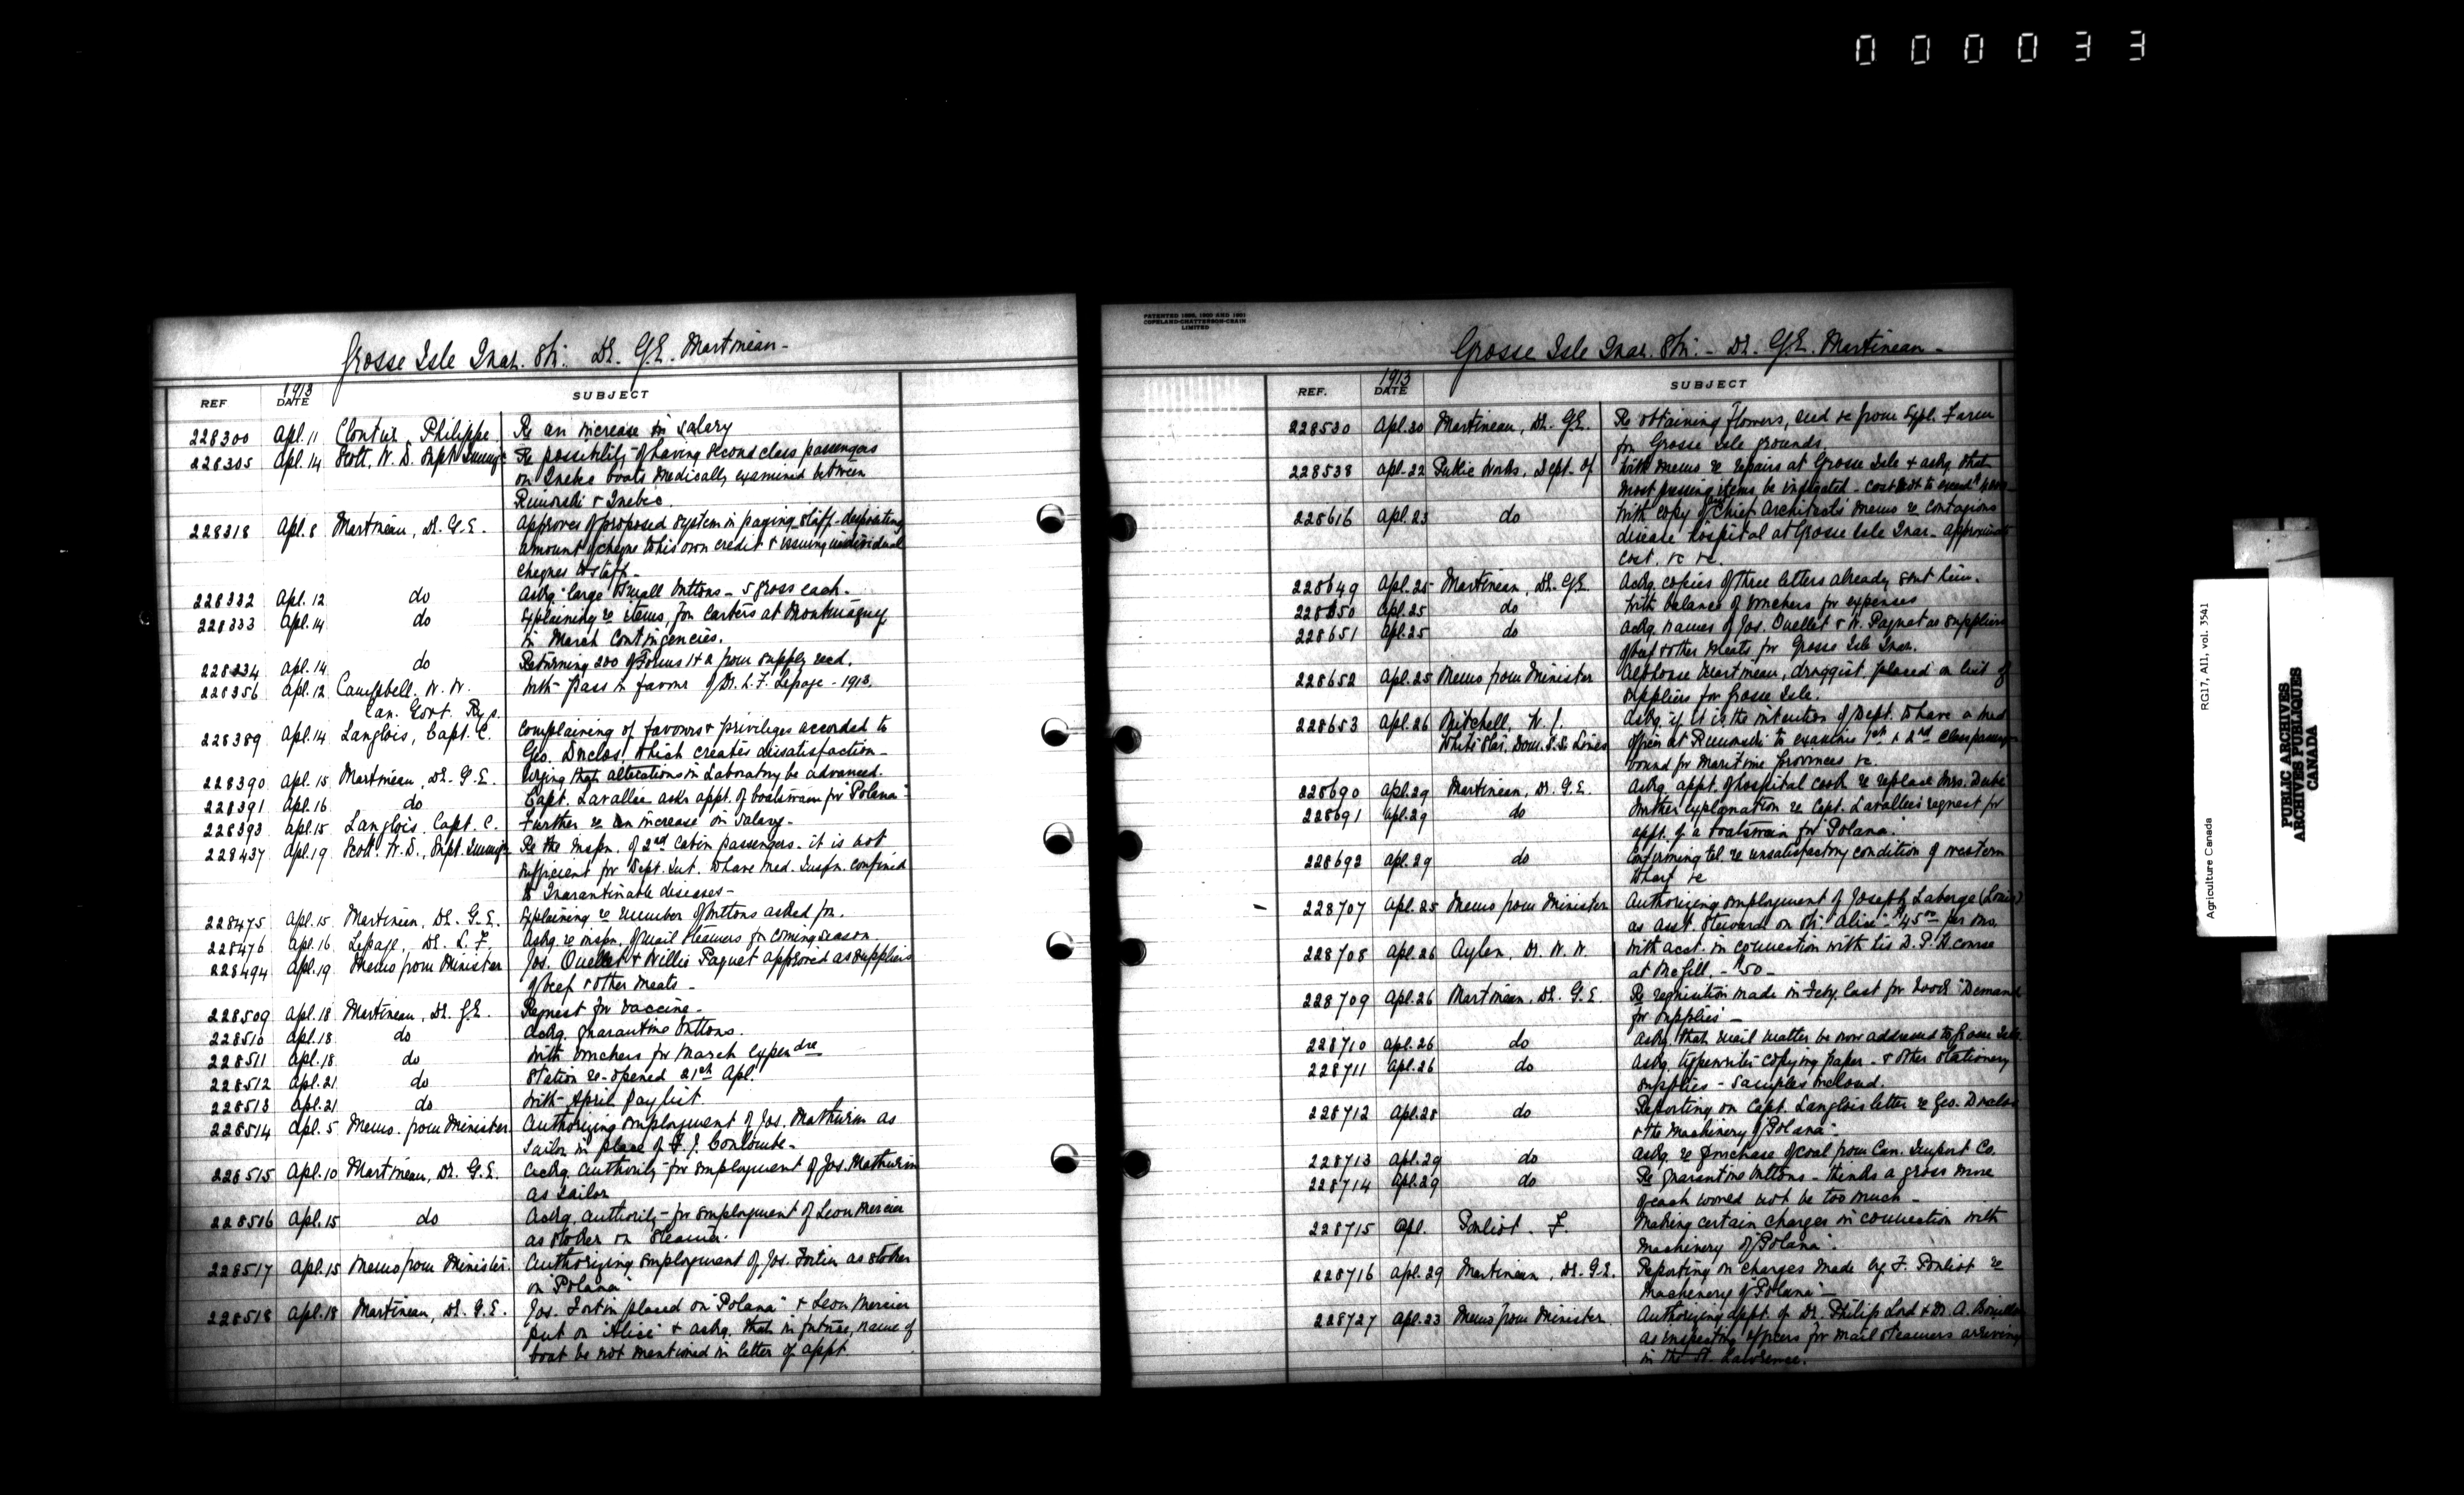 0 0 0 0 3 3
Grosse Isle Quar. Stn. Dr. G.E. Martineau -
REF 1913 DATE SUBJECT
228300 Apl. 11 Cloutier Philippe Re an increase in salary
228305 Apl. 14 Scott, W. D. Supt Immig. Re possibility of having second class passengers
on Quebec boats medically examined between
Rimouski & Quebec.
228318 Apl. 8 Martineau, Dr. G.E. Approves of proposed system in paying staff - depositing
amount of cheque to his own credit & issuing individual
cheques to staff -
228332 Apl. 12 do Askg. large & small buttons - 5 gross each -
228333 Apl. 14 do Explaining re items, for carters at Montmagny
in March Contingencies.
228334 Apl. 14 do Returning 200 of Forms 1 & 2 from supply recd.
228356 Apl. 12 Campbell. W. W. With pass in favour of Dr. L. F. Lepage - 1913.
Can. Govt. Rys.
228389 Apl. 14 Langlois, Capt. C. Complaining of favours & privileges accorded to
Geo. Duclos, which creates dissatisfaction -
228390 Apl. 15 Martineau, Dr. G.E. Urging that alterations in Laboratory be advanced.
228391 Apl. 16 do Capt. Lavallee asks appt. of boatswain for "Polana"
228393 Apl. 15 Langlois, Capt. C. Further re an increase in salary -
228437 Apl. 19 Scott. W. D., Supt. Immig. Re the inspn. of 2nd Cabin passengers - it is not
sufficient for Dept. Int. to have med. inspn. confined
to Quarantinable diseases -
228475 Apl. 15 Martineau, Dr. G.E. Explaining re number of buttons asked for.
228476 Apl. 16 Lepage, Dr. L. F. Askg. re inspn. of mail steamers for coming season.
228494 Apl. 19 Memo from Minister Jos. Ouellet & Willie Paquet approved as suppliers
of beef & other meats -
228509 Apl. 18 Martineau, Dr. G.E. Request for vaccine -
228510 Apl. 18 do Ackg. quarantine buttons.
228511 Apl. 18 do With vouchers for March expendre
228512 Apl. 21 do Station re-opened 21st Apl.
228513 Apl. 21 do With April paylist.
228514 Apl. 5 Memo. from Minister Authorizing employment of Jos. Mathurin as
sailor in place of F. J. Coulombe -
228515 Apl. 10 Martineau, Dr. G.E. Ackg. authority for employment of Jos. Mathurin
as sailor
228516 Apl. 15 do Ackg. authority for employment of Leon Mercier
as stoker on Steamer.
228517 Apl. 15 Memo from Minister. Authorizing employment of Jos. Fortin as stoker
on "Polana"
228518 Apl. 18 Martineau, Dr. G.E. Jos. Fortin placed on "Polana" & Leon Mercier
put on "Alice" & askg. that in future, name of
boat be not mentioned in letter of appt.
PATENTED 1896, 1900 AND 1901
COPELAND-CHATTERSON-CRAIN
LIMITED
Grosse Isle Quar. Stn. - Dr. G.E. Martineau -
REF. 1913 DATE SUBJECT
228530 Apl. 20 Martineau, Dr. G.E. Re obtaining flowers, seed &c from Expl. Farm
for Grosse Isle grounds.
228538 Apl. 22 Public Works, Dept. of With memo re repairs at Grosse Isle & askg. that
most pressing items be indicated - cost not to exceed
228616 Apl. 23 do With copy of Chief Architect's memo re contagious
disease hospital at Grosse Isle Quar - approximate
cost. &c &c.
228649 Apl. 25 Martineau, Dr. G.E. Ackg. copies of three letters already sent him.
228650 Apl. 25 do With balance of vouchers for expenses
228651 Apl. 25 do Ackg. names of Jos. Ouellet & W. Paquet as suppliers
of beef & other meats for Grosse Isle Quar.
228652 Apl. 25 Memo from Minister Alphonse Martineau, druggist, placed on list of
suppliers for Grosse Isle.
228653 Apl. 26 Mitchell, W. J. Askg. if it is the intention of Dept. to have a med
White Star, Dom. S.S. Lines officer at Rimouski to examine 1st & 2nd class passengers
bound for Maritime Provinces &c.
228690 Apl. 29 Martineau, Dr. G.E. Askg. appt. of hospital cook to replace Mrs. Dubé
228691 Apl. 29 do Further explanation re Capt. Lavallee's request for
appt. of a boatswain for "Polana".
228692 Apl. 29 do Confirming tel. re unsatisfactory condition of western
wharf &c
228707 Apl. 25 Memo from Minister Authorizing employment of Joseph Laberge (Louis)
as asst. steward on Str. "Alice" - $45.00 per mo.
228708 Apl. 26 Aylen, Dr. W. W. With acct. in connection with his D. P. H course
at McGill, - $50 -
228709 Apl. 26 Martineau, Dr. G.E. Re requisition made in Feby. last for 2 "Demand
for supplies" -
228710 Apl. 26 do Askg. that mail matter be now addressed to Grosse Isle
228711 Apl. 26 do Askg. typewriter copying paper - & other stationery
supplies - samples inclosed.
228712 Apl. 28 do Reporting on Capt. Langlois letter re Geo. Duclos
& the machinery of "Polana".
228713 Apl. 29 do Askg. re purchase of coal from Can. Import Co.
228714 Apl. 29 do Re quarantine buttons - thinks a gross more
of each would not be too much -
228715 Apl. Pouliot. F. Making certain charges in connection with
machinery of "Polana".
228716 Apl. 29 Martineau, Dr. G.E. Reporting on charges made by F. Pouliot re
machinery of "Polana" -
228727 Apl. 23 Memo from Minister. Authorizing appt. of Dr. Philip Lord & Dr. A.
as inspecting officers for mail steamers arriving
in the St. Lawrence.
Agriculture Canada RG17, A11, vol. 3541
PUBLIC ARCHIVES
ARCHIVES PUBLIQUES
CANADA